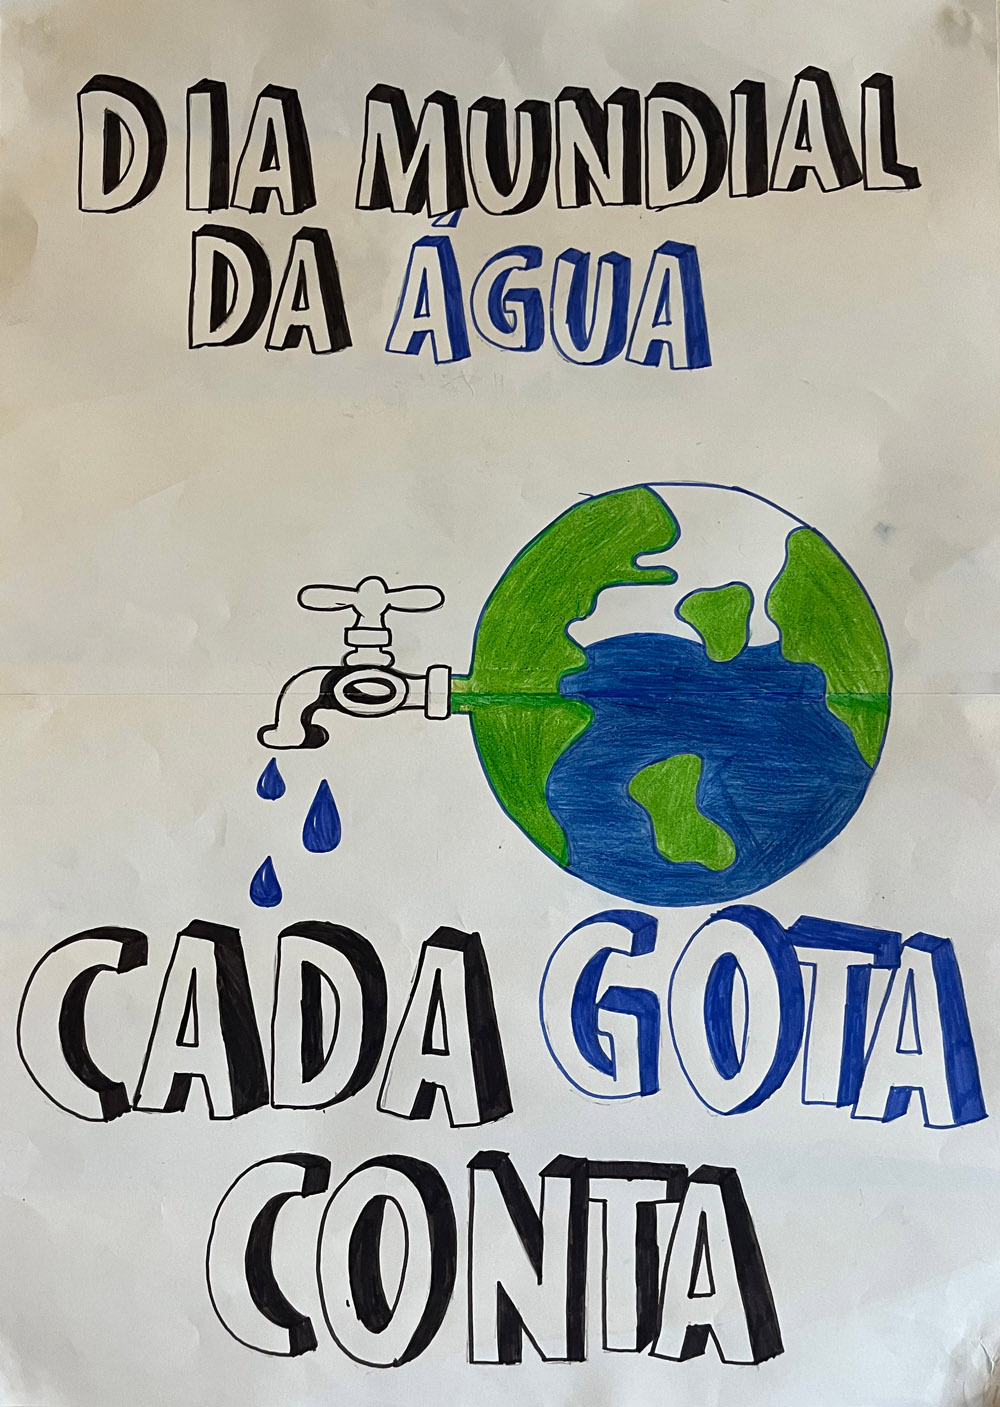 DIA MUNDIAL
DA ÁGUA
CADA GOTA
CONTA